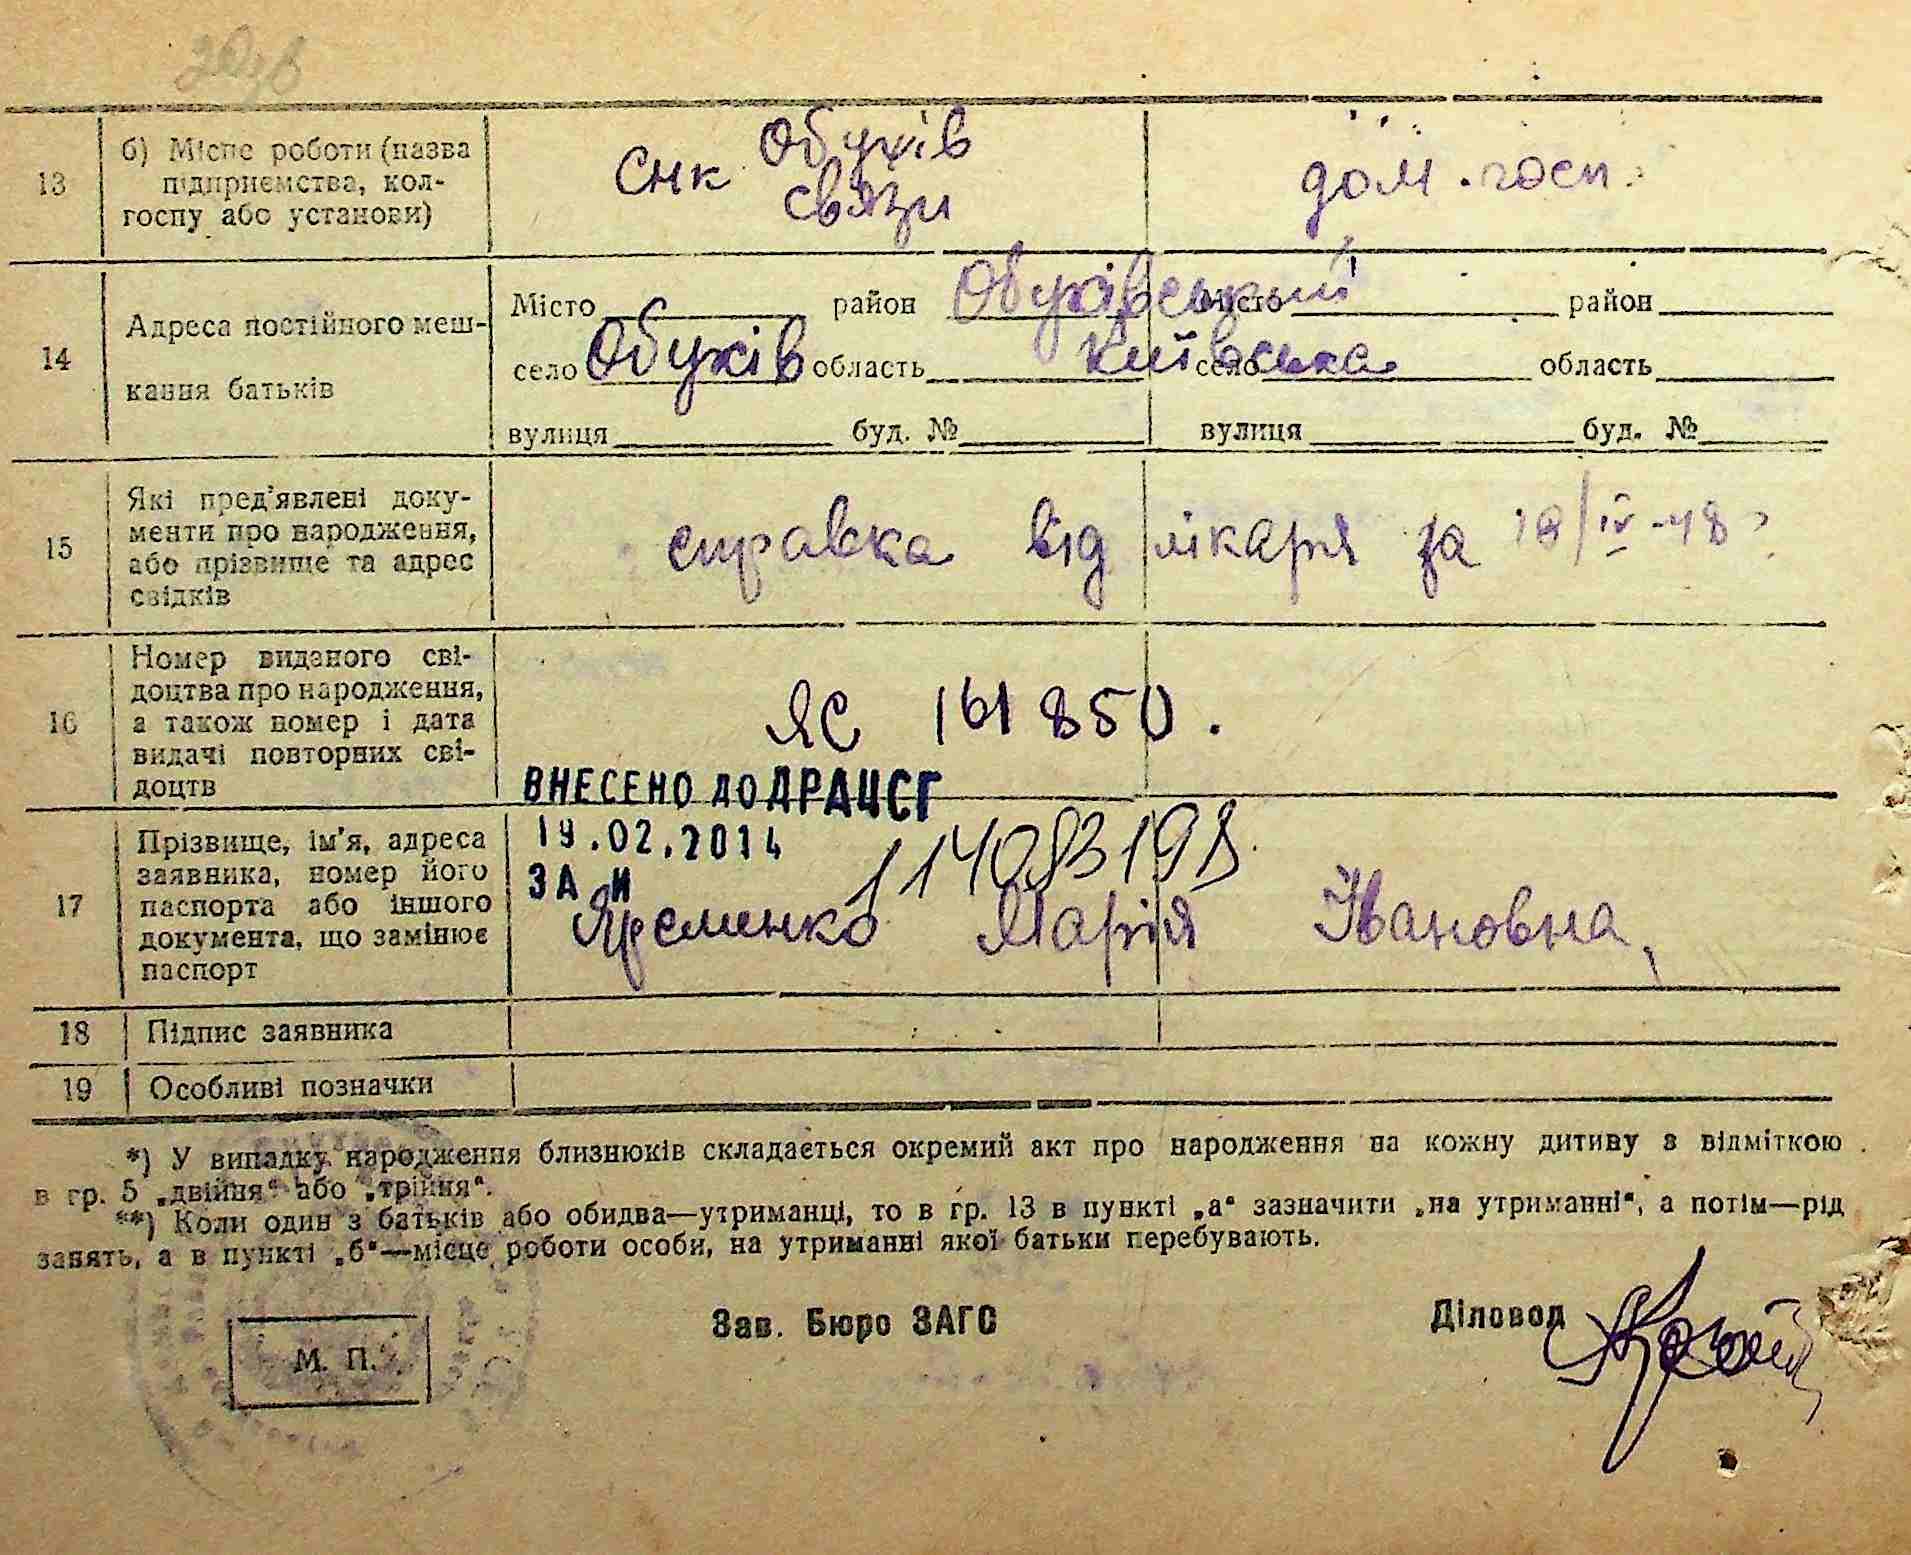 13 б) Місце роботи (назва
підприємства, кол-
госпу або установи)
Снк Обухів
связи
дом. госп.
14 Адреса постійного меш-
кання батьків
Місто район Обухівський Місто район
село Обухів область Київська село область
вулиця буд. № вулиця буд. №
15 Які пред'явлені доку-
менти про народження,
або прізвище та адрес
свідків
справка від лікаря за 18/IV-48
16 Номер виданого сві-
доцтва про народження,
а також номер і дата
видачі повторних сві-
доцтв
ЯС 161850.
ВНЕСЕНО ДО ДРАЦСГ
19.02.2014
ЗА И
17 Прізвище, ім'я, адреса
заявника, номер його
паспорта або іншого
документа, що замінює
паспорт
Яременко Марія Івановна,
18 Підпис заявника
19 Особливі позначки
*) У випадку народження близнюків складається окремий акт про народження на кожну дитину з відміткою
в гр. 5 „двійня“ або „трійня“.
**) Коли один з батьків або обидва—утриманці, то в гр. 13 в пункті „а“ зазначити „на утриманні“, а потім—рід
занять, а в пункті „б“—місце роботи особи, на утриманні якої батьки перебувають.
М. П.
Зав. Бюро ЗАГС
Діловод